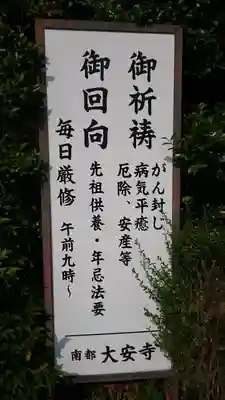 御祈祷
がん封じ
病気平癒
厄除、安産等
御回向
先祖供養・年忌法要
毎日厳修 午前九時～
南都 大安寺